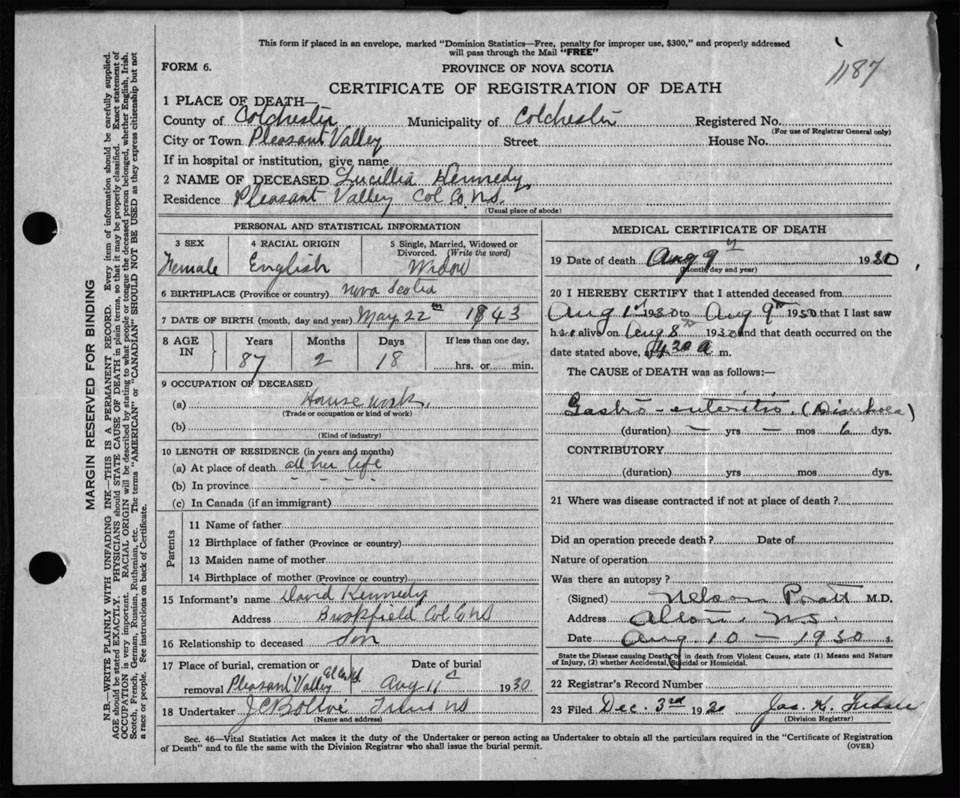 This form if placed in an envelope, marked "Dominion Statistics—Free, penalty for improper use, $300," and properly addressed
will pass through the Mail "FREE"
1187
FORM 6.
PROVINCE OF NOVA SCOTIA
CERTIFICATE OF REGISTRATION OF DEATH
1 PLACE OF DEATH—
County of Colchester Municipality of Colchester Registered No.
(For use of Registrar General only)
City or Town Pleasant Valley Street House No.
If in hospital or institution, give name
2 NAME OF DECEASED Lucillia Kennedy
Residence Pleasant Valley Col Co. NS.
(Usual place of abode)
PERSONAL AND STATISTICAL INFORMATION
3 SEX 4 RACIAL ORIGIN 5 Single, Married, Widowed or Divorced. (Write the word)
Female English Widow
6 BIRTHPLACE (Province or country) Nova Scotia
7 DATE OF BIRTH (month, day and year) May 22 1843
8 AGE IN Years Months Days If less than one day,
87 2 18 hrs. or min.
9 OCCUPATION OF DECEASED
(a) House work.
(Trade or occupation or kind of work)
(b)
(Kind of industry)
10 LENGTH OF RESIDENCE (in years and months)
(a) At place of death all her life
(b) In province
(c) In Canada (if an immigrant)
Parents
11 Name of father
12 Birthplace of father (Province or country)
13 Maiden name of mother
14 Birthplace of mother (Province or country)
15 Informant's name David Kennedy
Address Brookfield Col Co NS
16 Relationship to deceased Son
17 Place of burial, cremation or Date of burial
removal Pleasant Valley Aug 11 1930
18 Undertaker
(Name and address)
MEDICAL CERTIFICATE OF DEATH
19 Date of death Aug 9 1930
(Month, day and year)
20 I HEREBY CERTIFY that I attended deceased from
Aug 1 1930 to Aug 9th 1930 that I last saw
her alive on Aug 8th 1930 and that death occurred on the
date stated above, at m.
The CAUSE of DEATH was as follows:—
Gastro-enteritis (Diarrhoea)
(duration) — yrs — mos 6 dys.
CONTRIBUTORY
(duration) yrs mos dys.
21 Where was disease contracted if not at place of death?
Did an operation precede death? Date of
Nature of operation
Was there an autopsy?
(Signed) Nelson Pratt M.D.
Address Alton, NS.
Date Aug 10 — 1930
State the Disease causing Death, or in death from Violent Causes, state (1) Means and Nature
of Injury, (2) whether Accidental, Suicidal or Homicidal.
22 Registrar's Record Number
23 Filed Dec. 3rd 1930 Jas. H.
(Division Registrar)
Sec. 46—Vital Statistics Act makes it the duty of the Undertaker or person acting as Undertaker to obtain all the particulars required in the "Certificate of Registration
of Death" and to file the same with the Division Registrar who shall issue the burial permit.
(OVER)
MARGIN RESERVED FOR BINDING
N.B.—WRITE PLAINLY WITH UNFADING INK—THIS IS A PERMANENT RECORD. Every item of information should be carefully supplied.
AGE should be stated EXACTLY. PHYSICIANS should STATE CAUSE OF DEATH in plain terms, so that it may be properly classified. Exact statement of
OCCUPATION is very important. RACIAL ORIGIN will be described by stating to what people or tongue the deceased person belonged, whether English, Irish,
Scotch, French, German, Russian, Ruthenian, etc. The terms "AMERICAN" or "CANADIAN" SHOULD NOT BE USED as they express citizenship but not
a race or people. See instructions on back of Certificate.